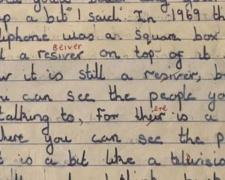 up a bit I said. In 1969 th
lephone was a square box
beiver
a resiver on top of it
w it is still a resiver, b
u can see the people yo
ere
talking to, For their is a
here you can see the p
t is a bit like a televisio